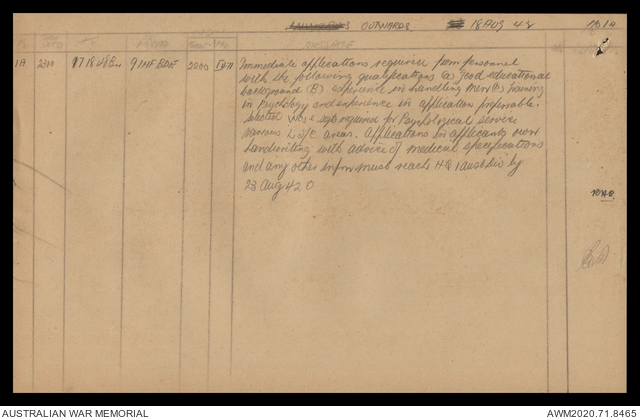 OUTWARDS 18 AUG 42
1A 2310 17 18 48 Bns 9 INF BDE 2200 Immediate applications required from personnel
with the following qualifications (A) Good educational
background (B) experience in handling men (C) training
in Psychology and experience in application preferable.
Selected WOs & sgts required for Psychological service
various L of C areas. Applications in applicants own
handwriting with advice of medical specifications
and any other infm must reach HQ 1 Aust Div by
23 Aug 42.
AUSTRALIAN WAR MEMORIAL
AWM2020.71.8465